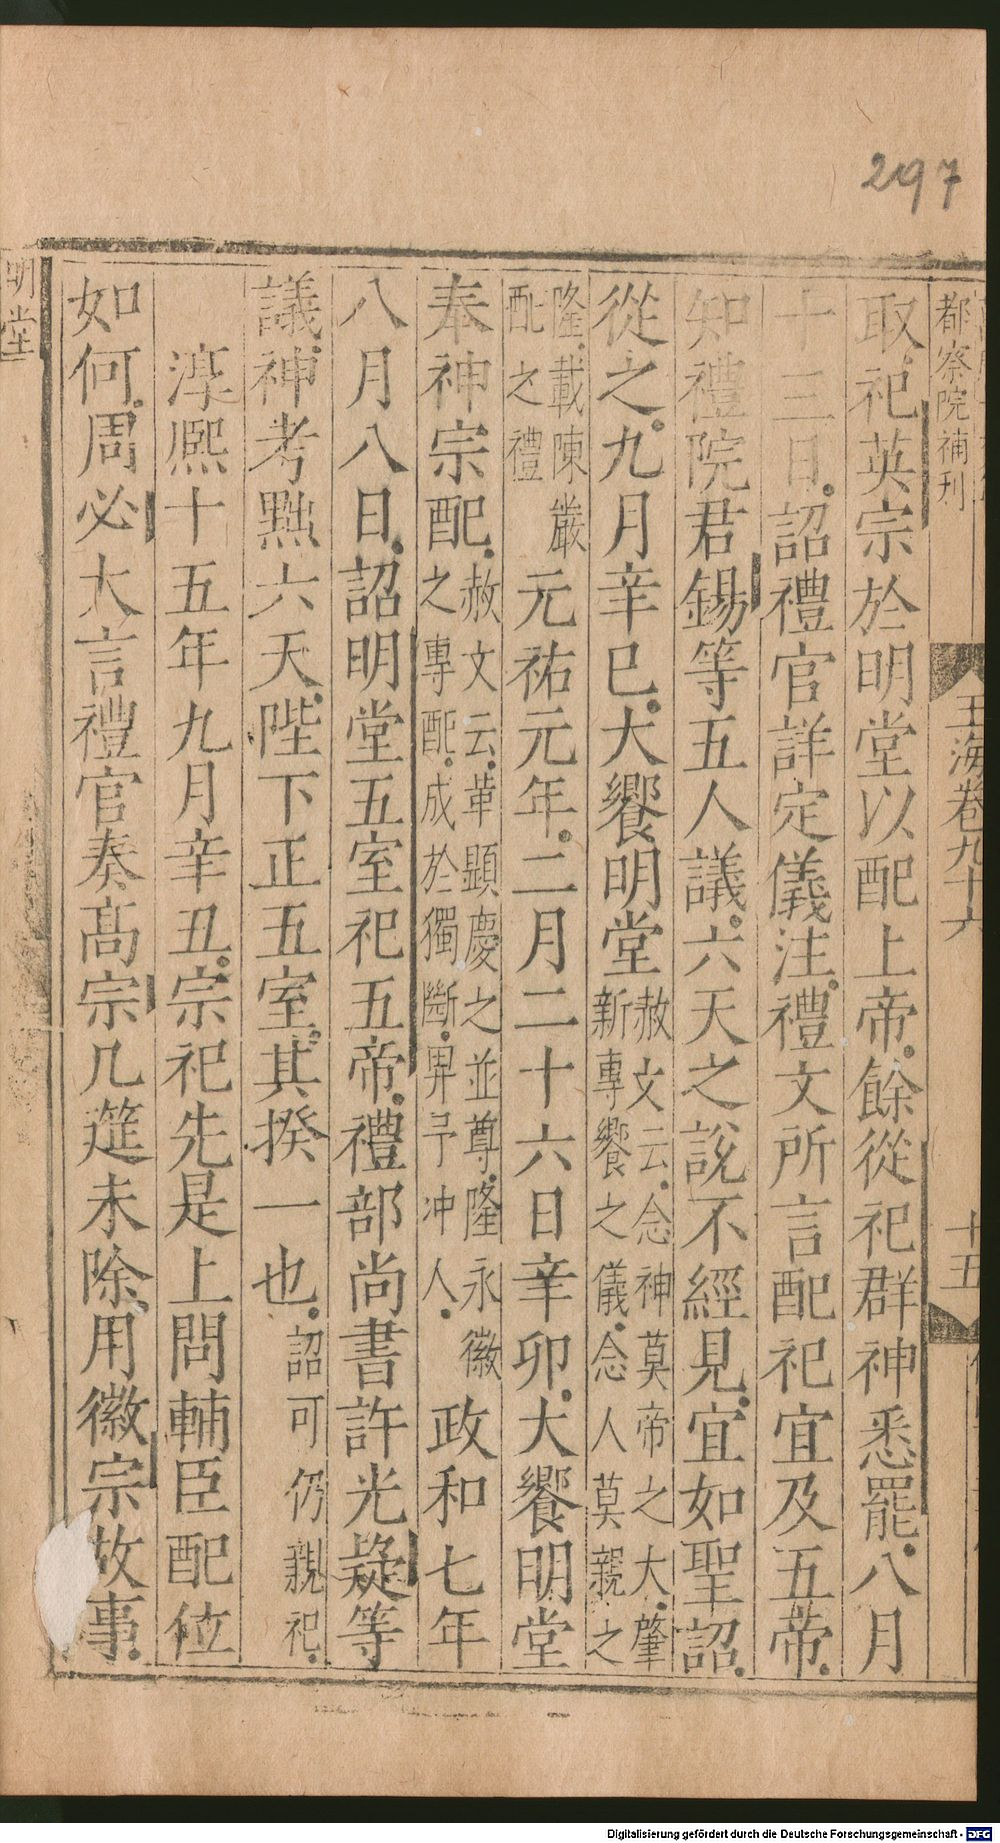 297
都察院補刊
玉海卷九十六
十五
取祀英宗於明堂以配上帝餘從祀群神悉罷八月
十三日詔禮官詳定儀注禮文所言配祀宜及五帝
知禮院君錫等五人議六天之說不經見宜如聖詔
從之九月辛巳大饗明堂赦文云念神莫帝之大肇新專饗之儀念人莫親之
隆載陳嚴配之禮元祐元年二月二十六日辛卯大饗明堂
奉神宗配赦文云革顯慶之並尊隆永徽之專配成於獨斷畀予冲人政和七年
八月八日詔明堂五室祀五帝禮部尚書許光疑等
議神考黜六天陛下正五室其揆一也詔可仍親祀
淳熙十五年九月辛丑宗祀先是上問輔臣配位
如何周必大言禮官奏高宗几筵未除用徽宗故事
明堂
Digitalisierung gefördert durch die Deutsche Forschungsgemeinschaft - DFG